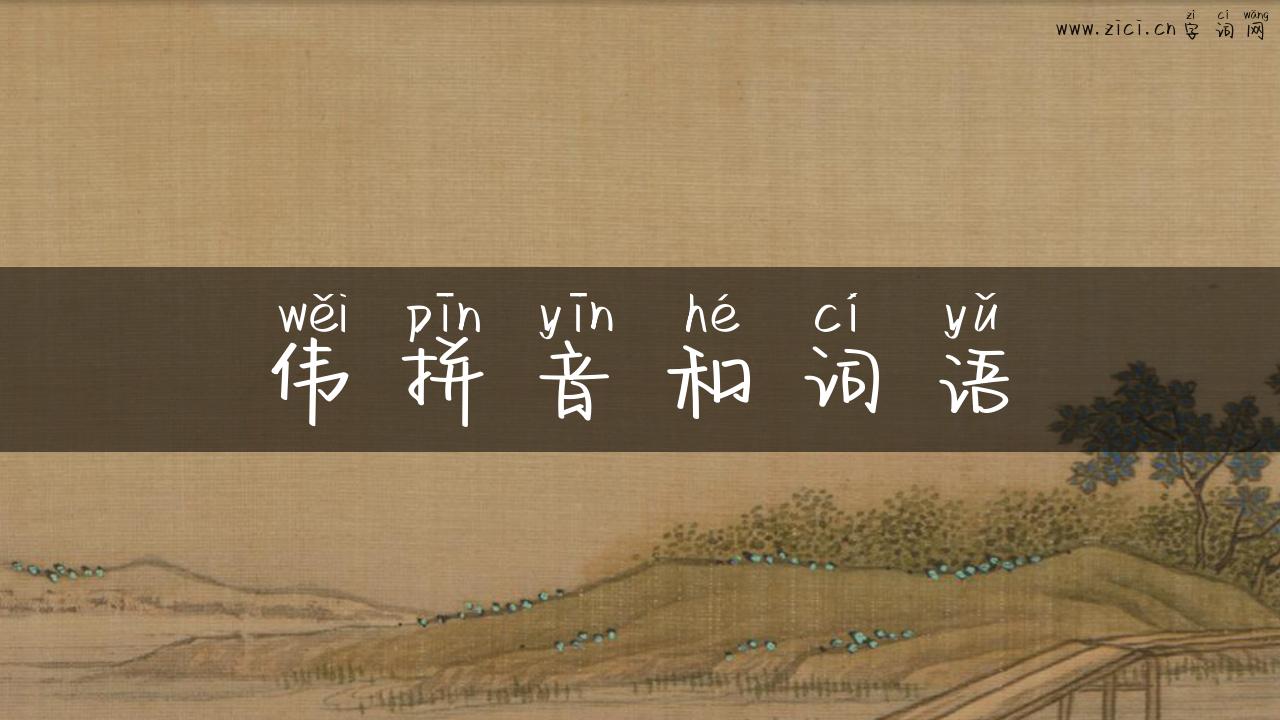 zì cí wǎng
www.zici.cn字词网
wěi pīn yīn hé cí yǔ
伟拼音和词语